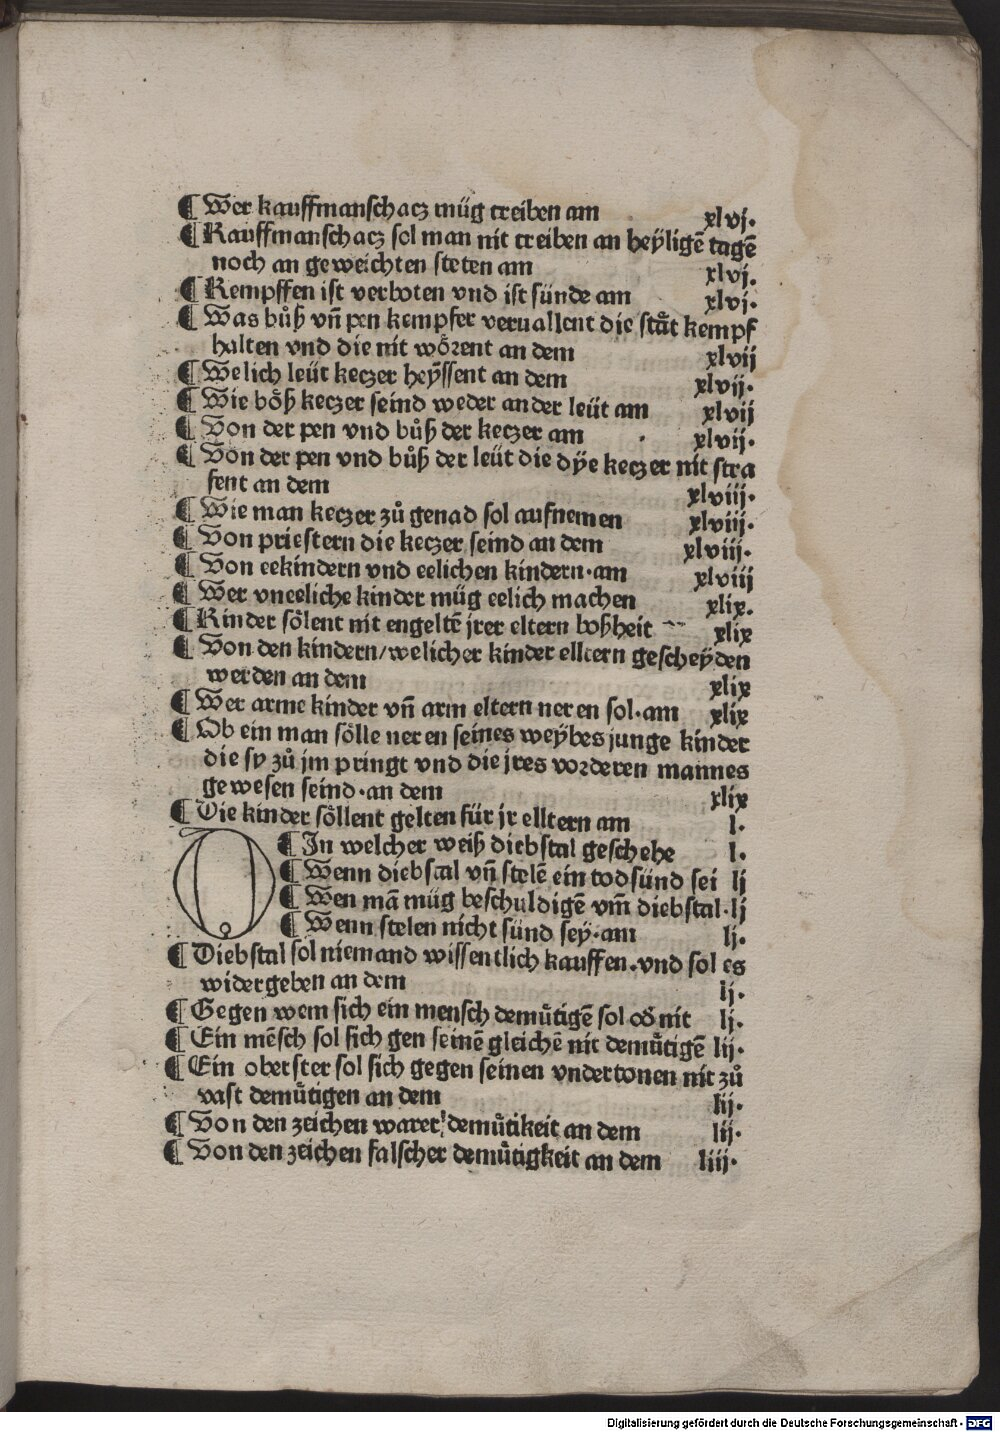 ¶ Wer kauffmanschacz müg treiben am xlvj.
¶ Kauffmanschacz sol man nit treiben an heÿligẽ tagẽ
noch an geweichten steten am xlvj.
¶ Kempffen ist verboten vnd ist sünde am xlvj.
¶ Was bůß vñ pen kempfer veruallent die ståt kempf
halten vnd die nit wörent an dem xlvij
¶ Welich leüt keczer heÿssent an dem xlvij.
¶ Wie böß keczer seind weder ander leüt am xlvij
¶ Von der pen vnd bůß der keczer am xlvij.
¶ Von der pen vnd bůß der leüt die dÿe keczer nit stra
fent an dem xlviij.
¶ Wie man keczer zů genad sol aufnemen xlviij.
¶ Von priestern die keczer seind an dem xlviij.
¶ Von eekindern vnd eelichen kindern·am xlviij
¶ Wer vneeliche kinder müg eelich machen xlix.
¶ Kinder söllent nit engeltẽ jrer eltern boßheit xlix
¶ Von den kindern/welicher kinder elltern gescheÿden
werden an dem xlix
¶ Wer arme kinder vñ arm eltern neren sol·am xlix
¶ Ob ein man sölle neren seines weÿbes junge kinder
die sy zů jm pringt vnd die jres vorderen mannes
gewesen seind·an dem xlix
¶ Die kinder söllent gelten für jr elltern am l.
¶ In welcher weiß diebstal geschehe l.
¶ Wenn diebstal vñ stelẽ ein todsünd sei lj
¶ Wen mã müg beschuldigẽ vm̃ diebstal·lj
¶ Wenn stelen nicht sünd sey·am lj.
¶ Diebstal sol niemand wissentlich kauffen·vnd sol es
widergeben an dem lj.
¶ Gegen wem sich ein mensch demůtigẽ sol od̓ nit lj.
¶ Ein mẽsch sol sich gen seinẽ gleichẽ nit demůtigẽ lij.
¶ Ein oberster sol sich gegen seinen vndertonen nit zů
vast demůtigen an dem lij.
¶ Von den zeichen warer demůtikeit an dem lij.
¶ Von den zeichen falscher demůtigkeit an dem liij.
Digitalisierung gefördert durch die Deutsche Forschungsgemeinschaft · DFG